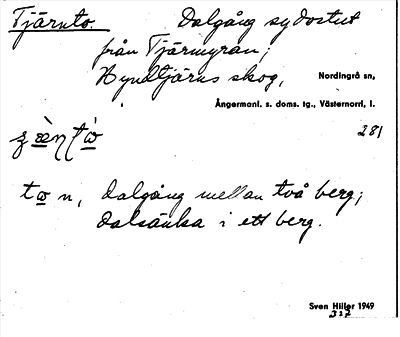 Tjärnto. Dalgång sydostut
från Tjärnmyran;
Hyndtjärns skog, Nordingrå sn,
Ångermanl. s. doms. tg., Västernorrl. l.
281
to n, dalgång mellan två berg;
dalsänka i ett berg.
Sven Hiller 1949
312